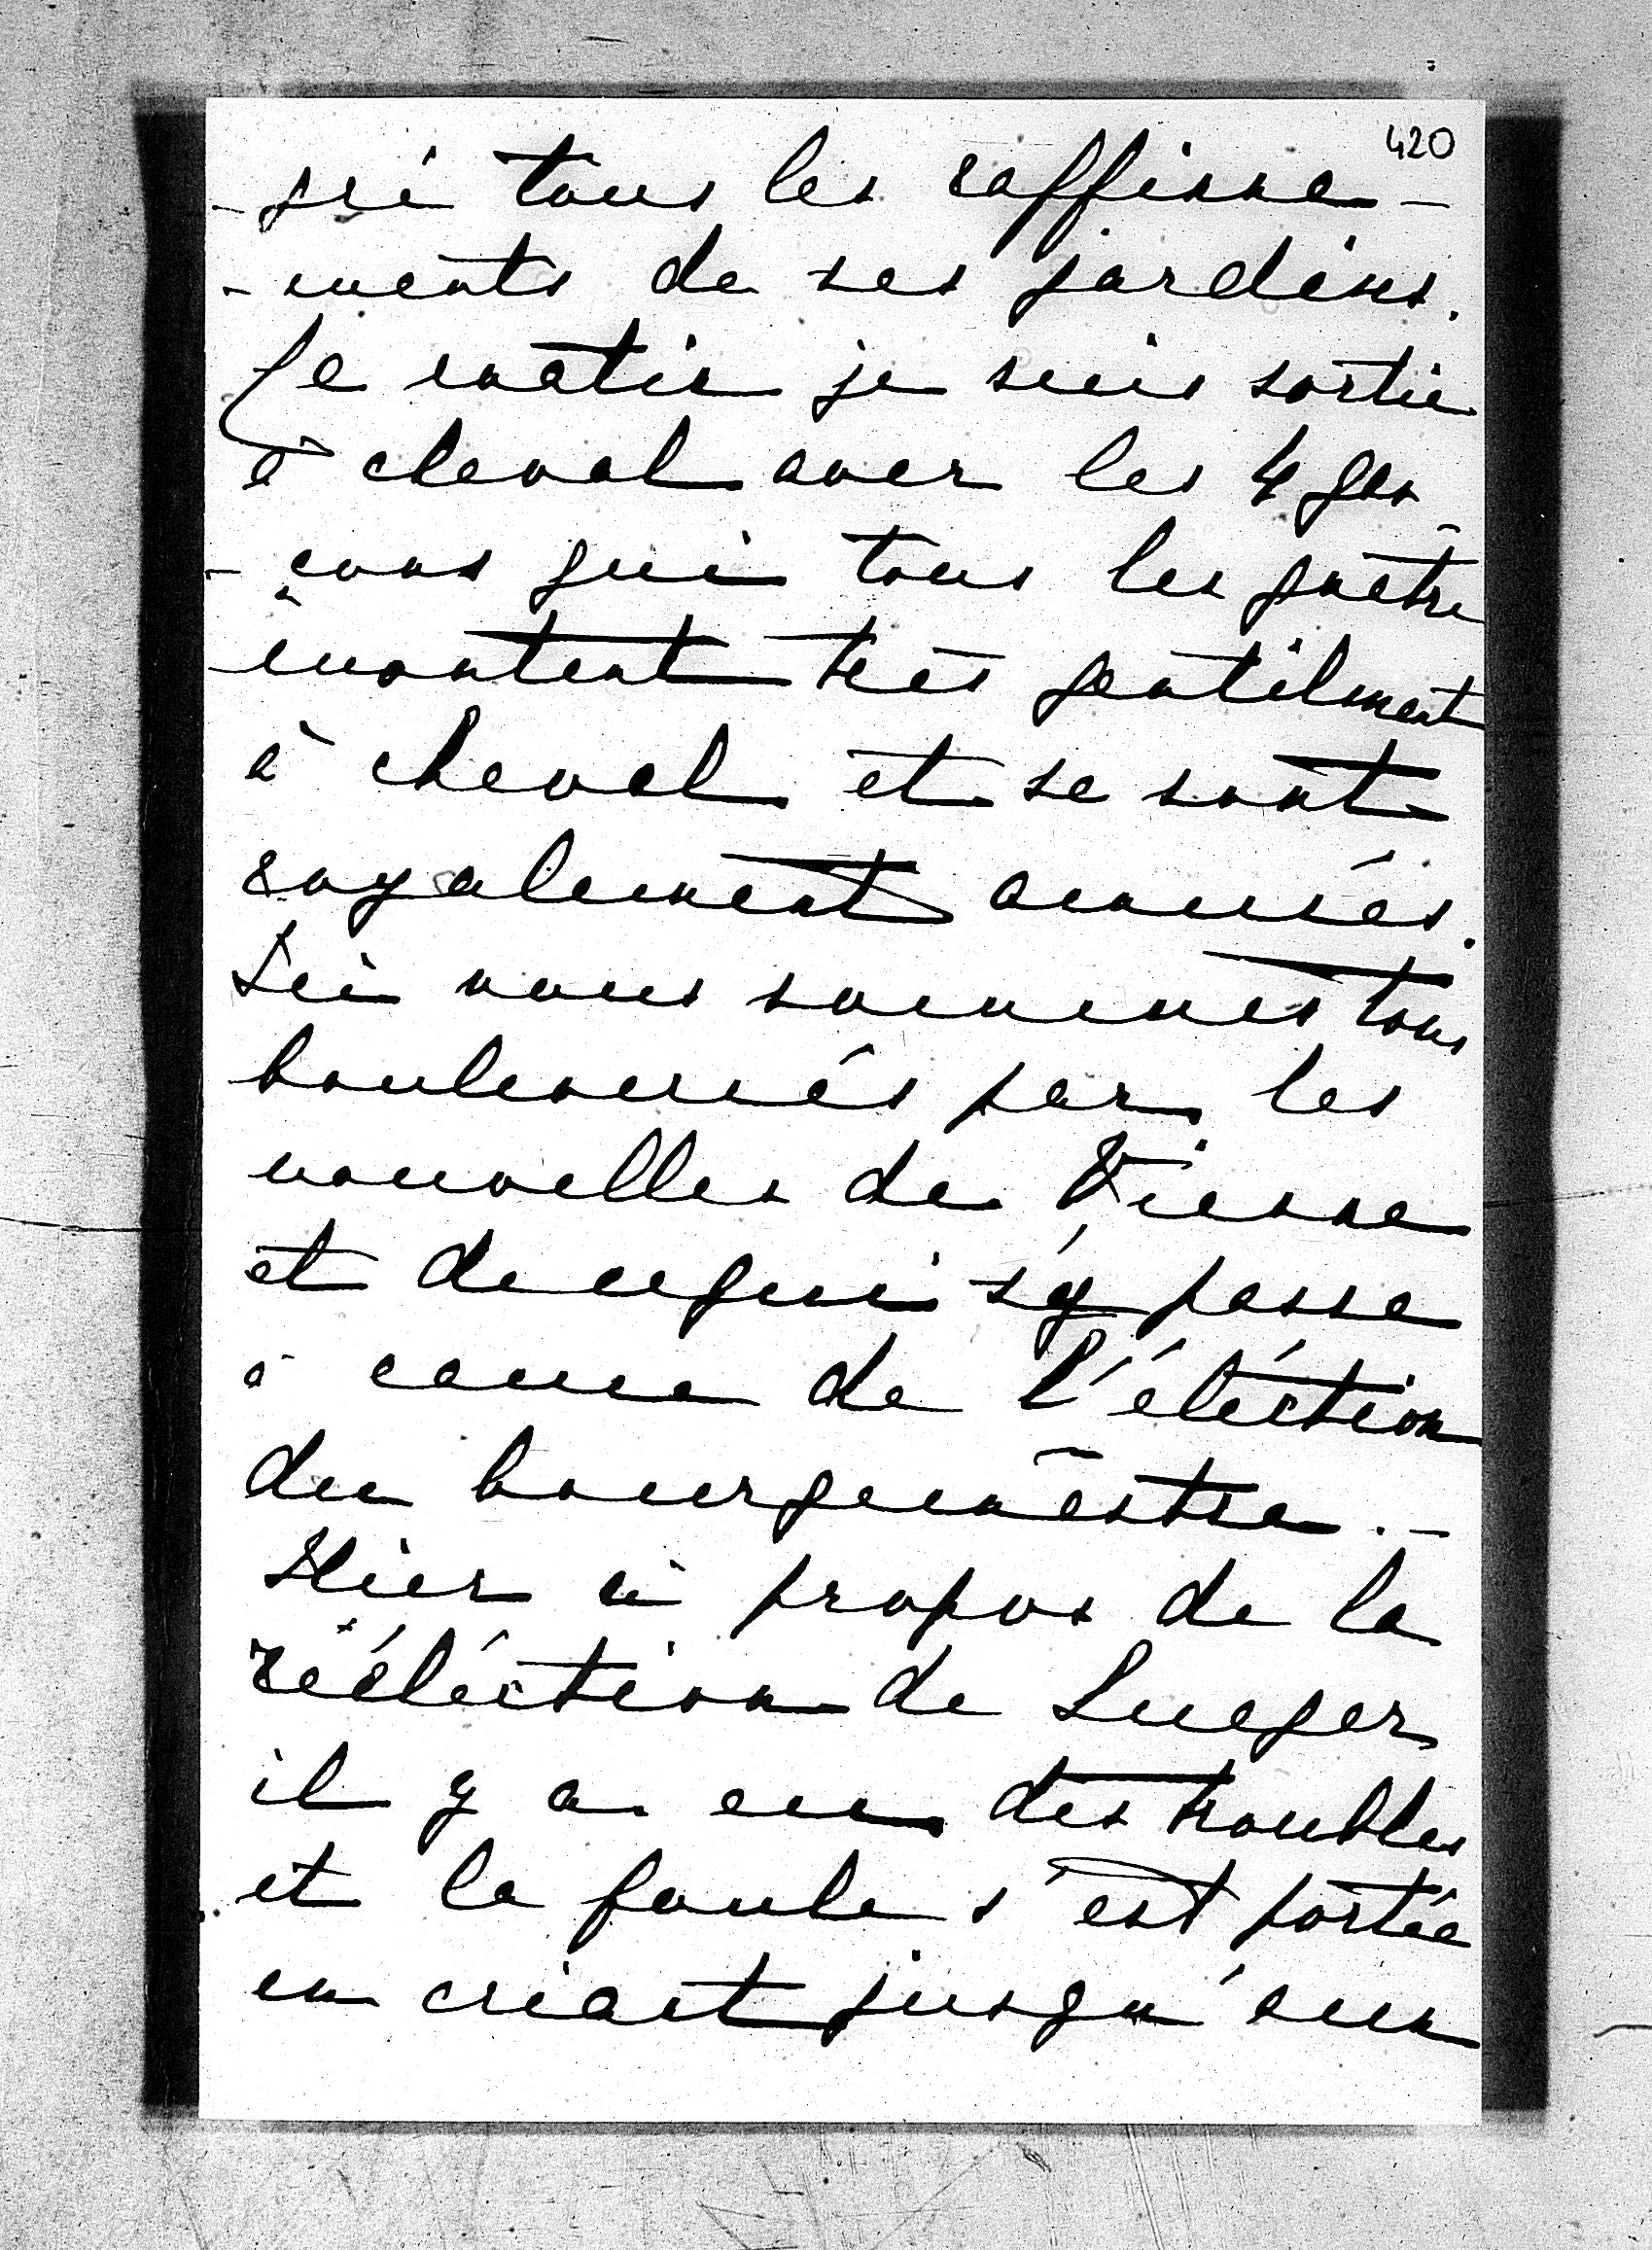 420
-gré tous les raffine-
-ments de ses jardins.
Le matin je suis sortie
à cheval avec les 4 gar-
-cons qui tous les quatre
montent très gentilment
à cheval et se sont
royalement amusés.
Ici nous sommes tous
bouleversés par les
nouvelles de Vienne
et de ce qui s'y passe
à cause de l'éléction
du bourgmêstre. -
Hier à propos de la
rééléction de Lueger
il y a eu des troubles
et la foule s'est portée
en criant jusqu'aux